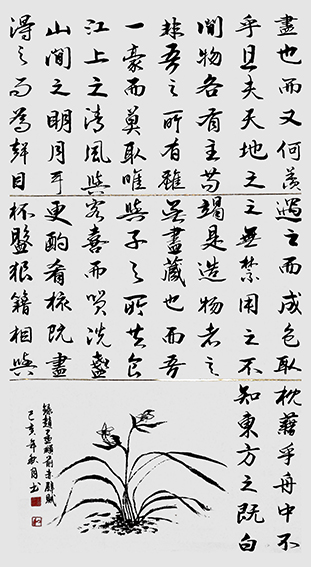 盡也而又何羨
乎且夫天地之
間物各有主苟
非吾之所有雖
一豪而莫取唯
江上之清風與
山間之明月耳
得之而為聲目
遇之而成色取
之無禁用之不
竭是造物者之
無盡藏也而吾
與子之所共食
客喜而咲洗盞
更酌肴核既盡
杯盤狼籍相與
枕藉乎舟中不
知東方之既白
錄趙孟頫前赤壁賦
己亥年秋月書